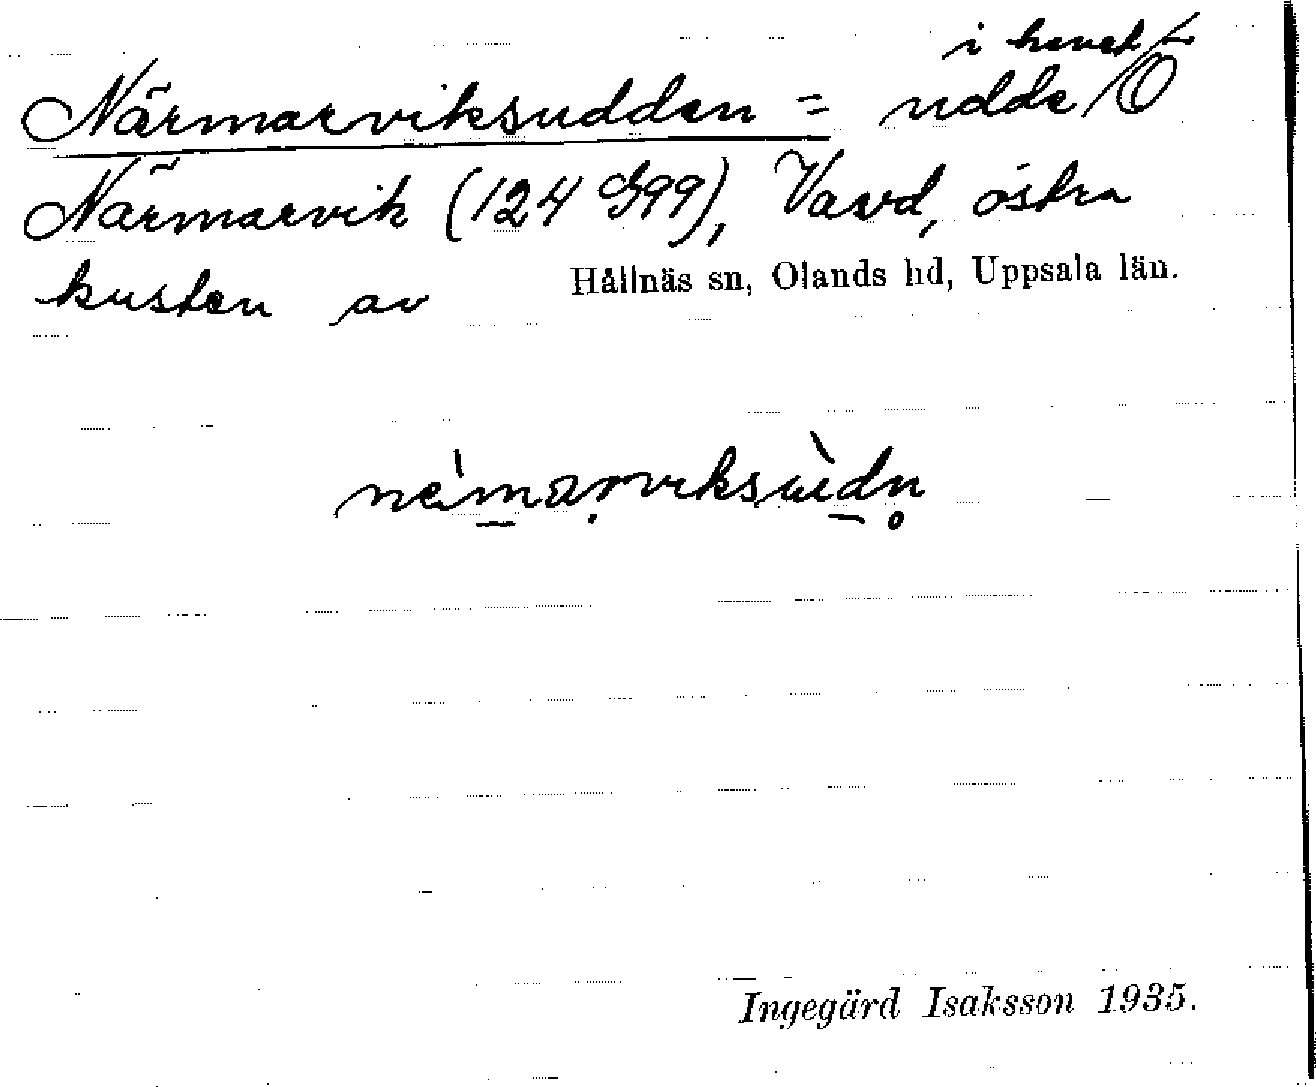 i havet
Närmarviksudden = udde / O
Närmarvik (124 G99), Vavd, östra
kusten av Hållnäs sn, Olands hd, Uppsala län.
Ingegärd Isaksson 1935.